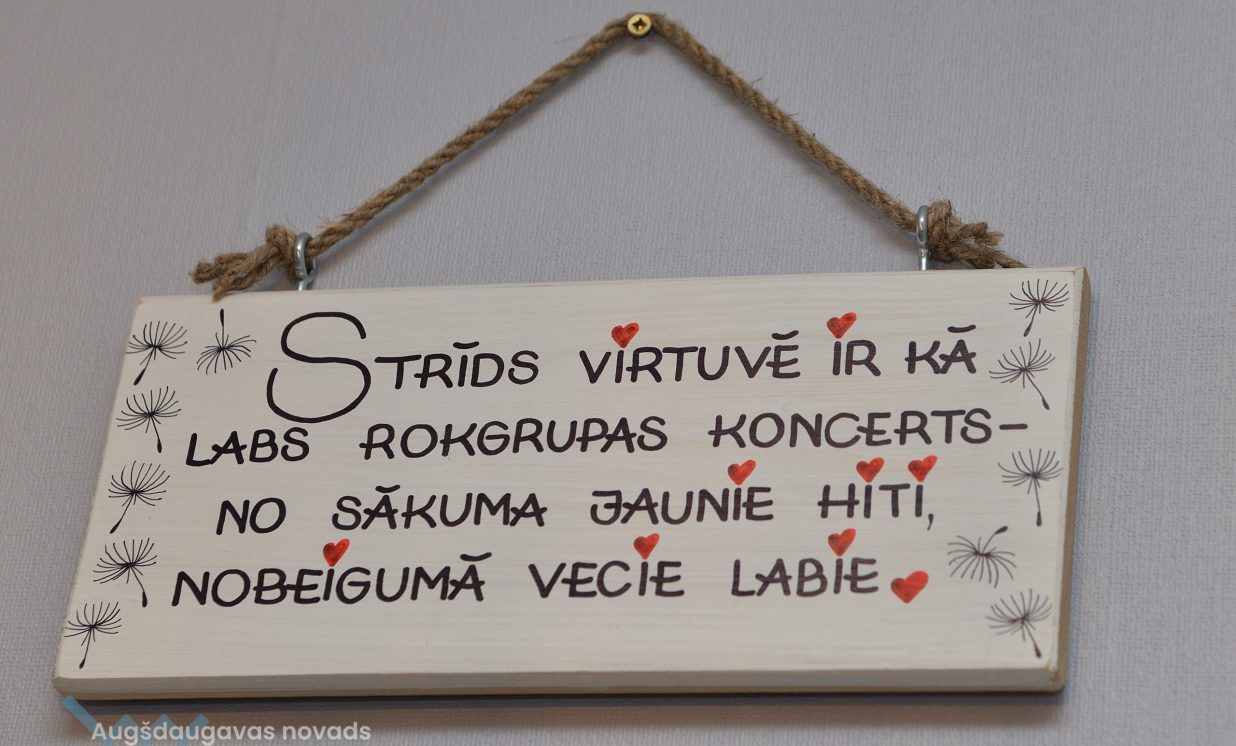 STRĪDS VIRTUVĒ IR KĀ
LABS ROKGRUPAS KONCERTS-
NO SĀKUMA JAUNIE HITI,
NOBEIGUMĀ VECIE LABIE
Augšdaugavas novads